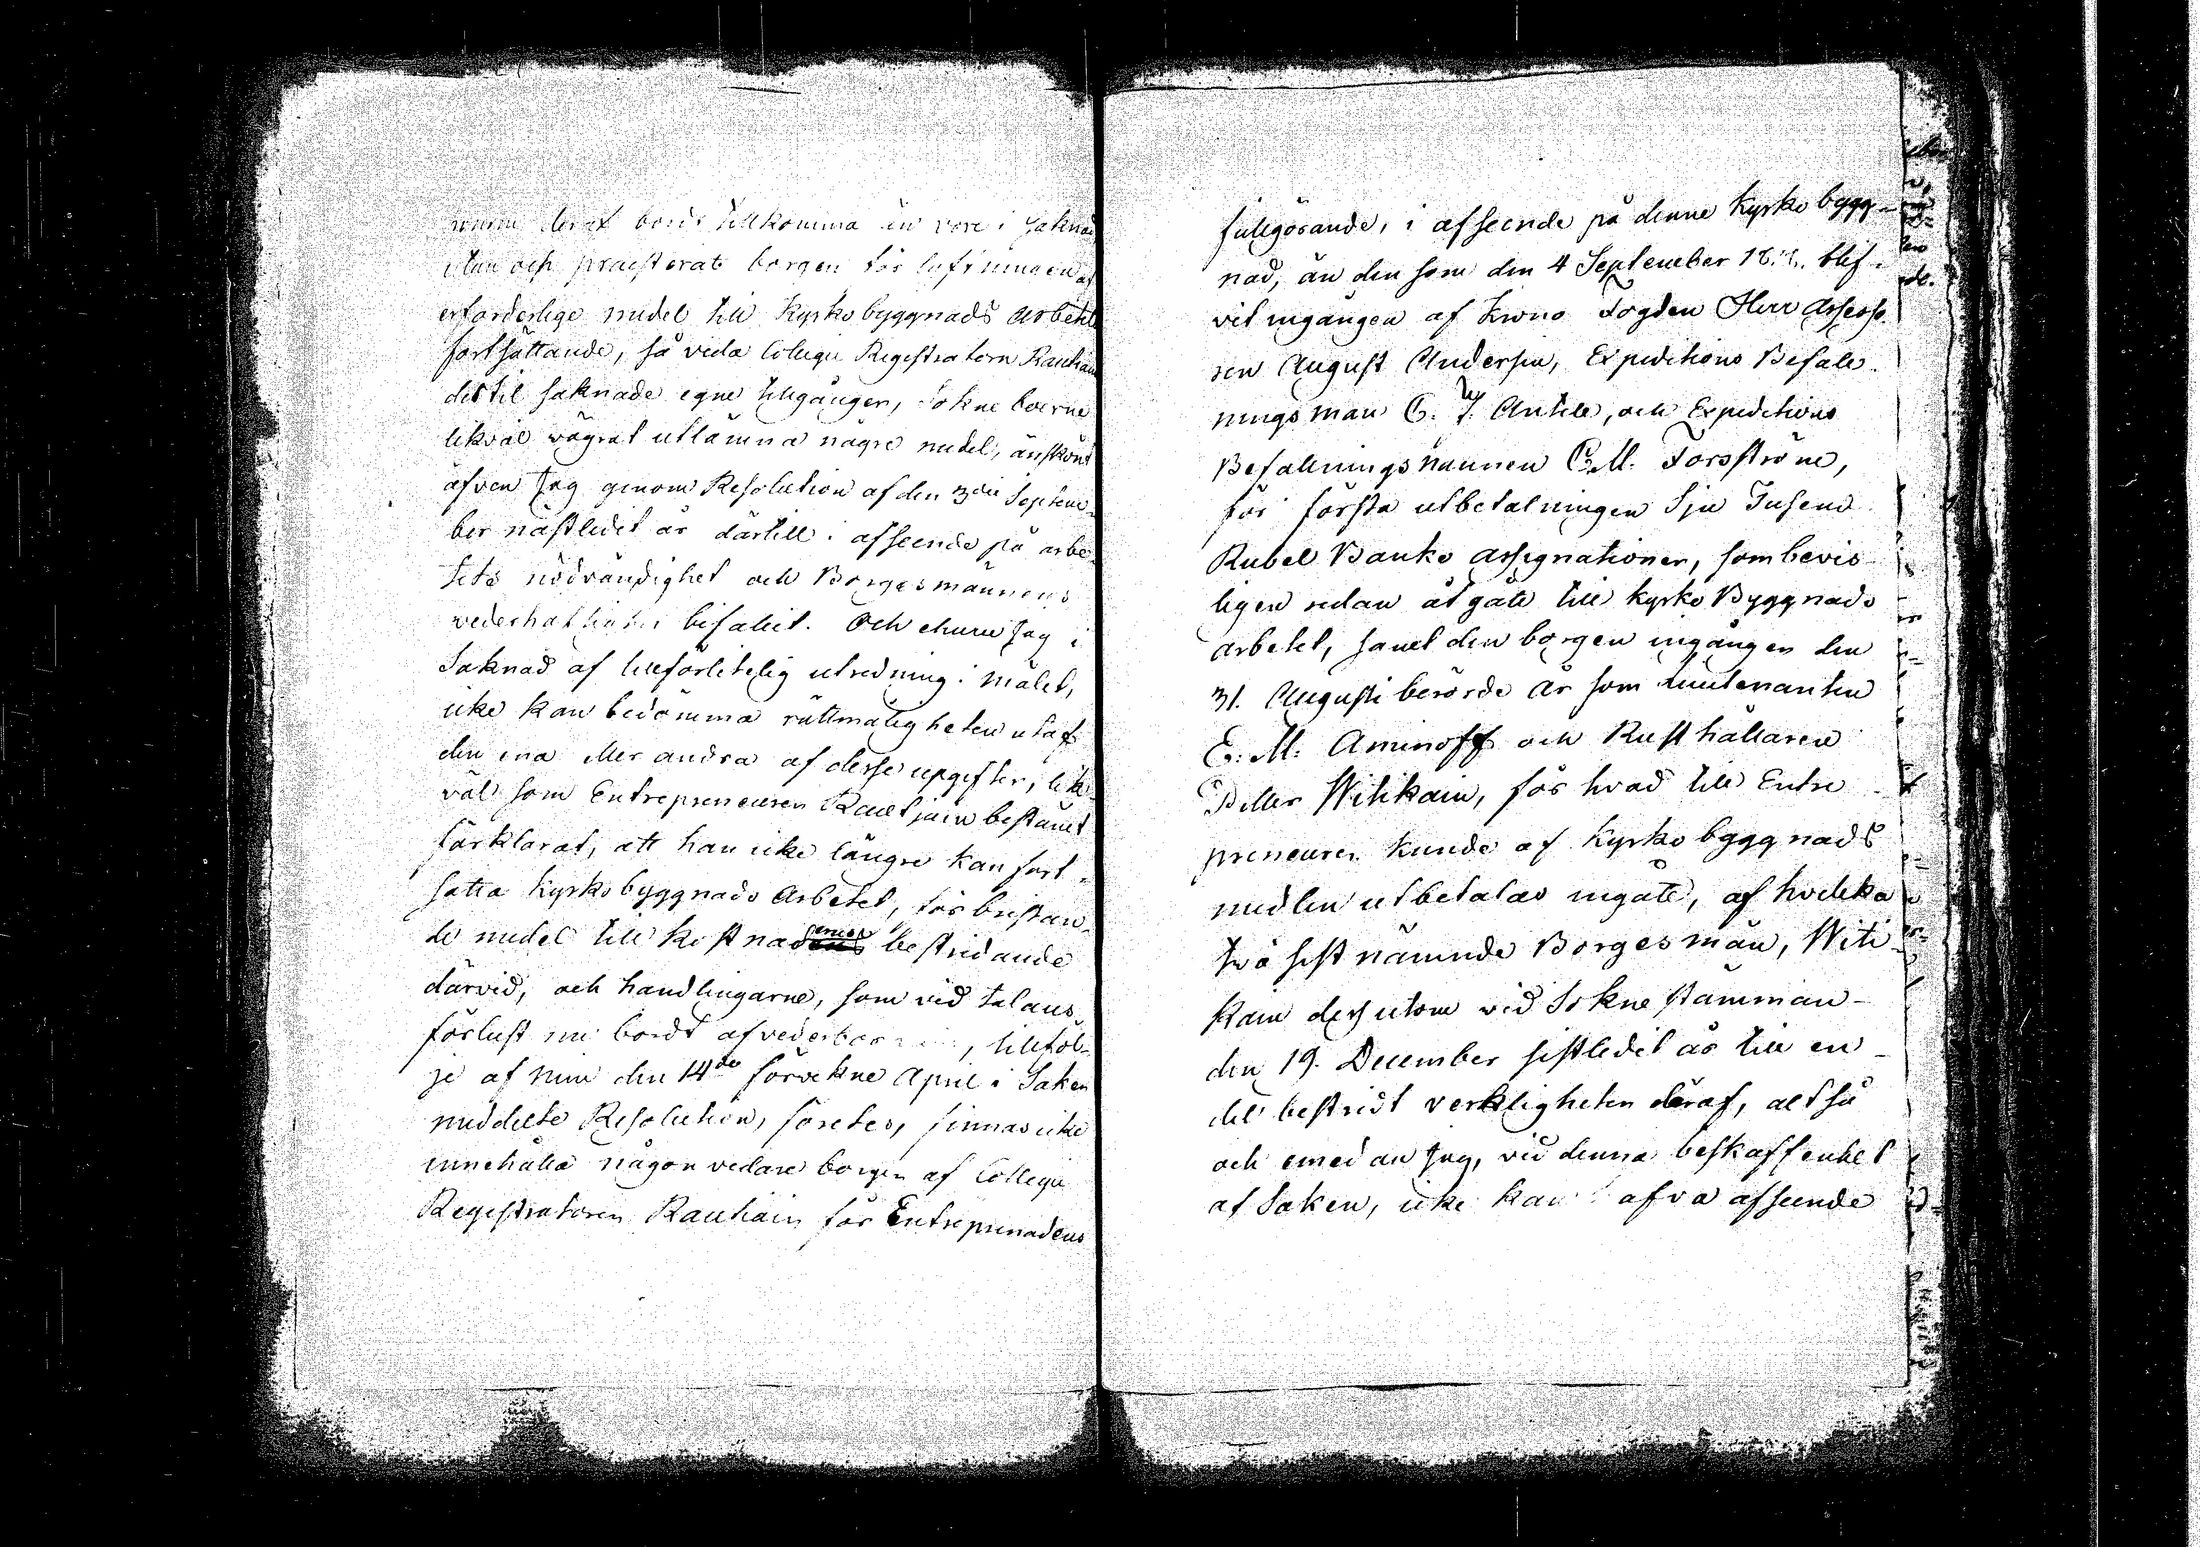 deraf bordt tillkomma en vore i saknad
utan och praesterat borgen för lyftningen af
erforderlige medel till Kyrkobyggnads Arbetets
fortsättande, så vida Collegii Registratorn Rauhiain
dertil saknade egne tillgångar, Sokneboerne
likväl vägrat utlämna någre medel, änskönt
äfven Jag genom Resolution af den 3die Septem-
ber nästledit år därtill i afseende på arbe-
tets nödvändighet och Borgesmännens
vederhäftighet bifallit. Och churu Jag i
Saknad af tillförlitelig utredning i målet,
icke kan bedömma rättmätigheten utaf
den ena eller andra af desse upgifter, lik-
väl som Entrepreneuren Rauhiain bestämt
förklarat, att han icke längre kan fort-
sätta Kyrkobyggnads Arbetet, för bristan-
de medel till kostnadernes bestridande
därvid, och handlingarne, som vid talans
förlust nu bordt af vederbörande, tillföl-
je af min den 14de förvekne April i Saken
meddelte Resolution, företes, finnas icke
innehålla någon vidare borgen af Collegii
Registratoren Rauhiain för Entreprenadens
fullgörande, i afseende på denne Kyrkobygg-
nad, än den som den 4 September blif-
vit ingången af Krono Fogden Herr Assesso-
ren August Andersin, Expeditions Befall-
ningsman C. J. Antell, och Expeditions
Befallningsmannen C. M. Forsström,
för första utbetalningen Sju Tusend
Rubel Banko Assignationer, som bevis-
ligen redan åtgått till Kyrko Byggnads
arbetet, samt den borgen ingången den
31. Augusti berörde år som Lieutenanten
E. M. Aminoff och Rusthållaren
Petter Witikain, för hvad till Entre-
preneuren kunde af Kyrkobyggnads
medlen utbetalas ingått, af hvilka
två sist nämnde Borgesmän, Witi-
kain dessutom vid Sokne stämman
den 19. December sistledit år till en
del bestridt verkligheten däraf, altså
och emedan Jag, vid denna beskaffenhet
af Saken, icke kan hafva afseende